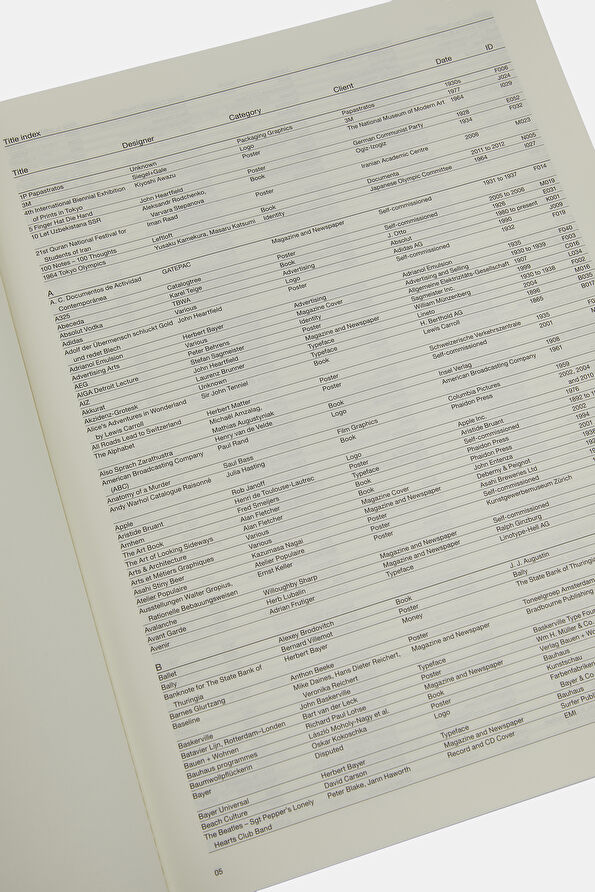 Title index
Title Designer Category Client Date ID
1P Papastratos Unknown Packaging Graphics Papastratos 1930s F006
3M Siegel+Gale Logo 3M 1977 J024
4th International Biennial Exhibition Kiyoshi Awazu Poster The National Museum of Modern Art 1964 I029
of Prints in Tokyo
5 Finger Hat Die Hand John Heartfield Poster German Communist Party 1928 E052
10 Let Uzbekistana SSR Aleksandr Rodchenko, Book Ogiz-Izogiz 1934 F032
Varvara Stepanova
21st Quran National Festival for Iman Raad Poster Iranian Academic Centre 2008 M023
Students of Iran
100 Notes – 100 Thoughts Leftloft Book Documenta 2011 to 2012 N005
1964 Tokyo Olympics Yusaku Kamekura, Masaru Katsumi Identity Japanese Olympic Committee 1964 I027
A
A. C. Documentos de Actividad GATEPAC Magazine and Newspaper Self-commissioned 1931 to 1937 F014
Contemporánea
A325 Catalogtree Poster Self-commissioned 2005 to 2006 M019
Abeceda Karel Teige Book J. Otto 1926 E031
Absolut Vodka TBWA Advertising Absolut 1980 to present K001
Adidas Various Logo Adidas AG 1990
Adolf der Übermensch schluckt Gold John Heartfield Poster 1932 F019
und redet Blech
Adrianol Emulsion Herbert Bayer Advertising Adrianol Emulsion 1935 F040
Advertising Arts Various Magazine Cover Advertising and Selling 1930 to 1935 F003
AEG Peter Behrens Identity Allgemeine Elektrizitäts-Gesellschaft 1907 C016
AIGA Detroit Lecture Stefan Sagmeister Poster Sagmeister Inc. 1999 L034
AIZ John Heartfield Magazine and Newspaper William Münzenberg 1930 to 1938 F002
Akkurat Laurenz Brunner Typeface Lineto 2004 M016
Akzidenz-Grotesk Unknown Typeface H. Berthold AG 1896 B035
Alice's Adventures in Wonderland Sir John Tenniel Book Lewis Carroll 1865 B017
by Lewis Carroll
All Roads Lead to Switzerland Herbert Matter Poster Schweizerische Verkehrszentrale 1935
The Alphabet Michaël Amzalag, Poster Self-commissioned 2001
Mathias Augustyniak
Also Sprach Zarathustra Henry van de Velde Book Insel Verlag 1908
American Broadcasting Company Paul Rand Logo American Broadcasting Company 1961
(ABC)
Anatomy of a Murder Saul Bass Film Graphics Columbia Pictures 1959
Andy Warhol Catalogue Raisonné Julia Hasting Book Phaidon Press 2002, 2004
and 2010
Apple Rob Janoff Logo Apple Inc. 1976
Aristide Bruant Henri de Toulouse-Lautrec Poster Aristide Bruant 1892 to
Arnhem Fred Smeijers Typeface Self-commissioned 2002
The Art Book Alan Fletcher Book Phaidon Press 1994
The Art of Looking Sideways Alan Fletcher Book Phaidon Press 2001
Arts & Architecture Various Magazine Cover John Entenza
Arts et Métiers Graphiques Various Magazine and Newspaper Deberny & Peignot
Asahi Stiny Beer Kazumasa Nagai Poster Asahi Breweries Ltd
Atelier Populaire Atelier Populaire Poster Self-commissioned
Ausstellungen Walter Gropius, Ernst Keller Poster Kunstgewerbemuseum Zürich
Rationelle Bebauungsweisen
Avalanche Willoughby Sharp Magazine and Newspaper Self-commissioned
Avant Garde Herb Lubalin Magazine and Newspaper Ralph Ginzburg
Avenir Adrian Frutiger Typeface Linotype-Hell AG
B
Ballet Alexey Brodovitch Book J. J. Augustin
Bally Bernard Villemot Poster Bally
Banknote for The State Bank of Herbert Bayer Money The State Bank of Thuringia
Thuringia
Barnes Glurtzang Anthon Beeke Poster Toneelgroep Amsterdam
Baseline Mike Daines, Hans Dieter Reichert, Magazine and Newspaper Bradbourne Publishing
Veronika Reichert
Baskerville John Baskerville Typeface Baskerville Type
Batavier Lijn, Rotterdam–Londen Bart van der Leck Poster Wm H. Müller & Co.
Bauen + Wohnen Richard Paul Lohse Magazine and Newspaper Verlag Bauen +
Bauhaus programmes László Moholy-Nagy et al. Book Bauhaus
Baumwollpflückerin Oskar Kokoschka Poster Kunstschau
Bayer Disputed Logo Farbenfabriken
Bayer & Co
Bayer Universal Herbert Bayer Typeface Bauhaus
Beach Culture David Carson Magazine and Newspaper Surfer
The Beatles – Sgt Pepper's Lonely Peter Blake, Jann Haworth Record and CD Cover EMI
Hearts Club Band
05